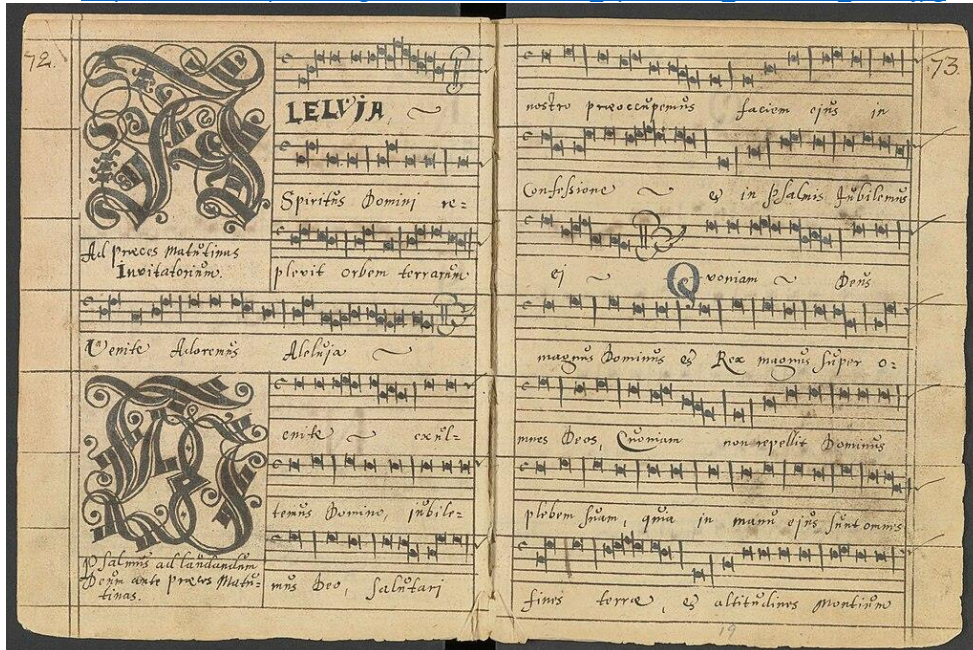 72.
LELVJA
Spiritus Domini re=
Ad præces Matutinas
Invitatorium.
plevit orbem terrarum
Venite Adoremus Aleluja
enite exul=
temus Domino, jubile=
Psalmus ad laudandum
Deum ante præces Matu=
tinas.
mus Deo, Salutari
73.
nostro præoccupemus faciem ejus in
Confessione & in Psalmis Jubilemus
ei Quoniam Deus
magnus Dominus & Rex magnus super o=
mnes Deos, Quoniam non repellit Dominus
plebem suam, quia in manu ejus sunt omnes
fines terræ, & altitudines Montium
19